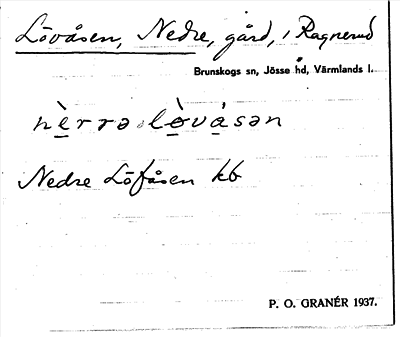 Lövåsen, Nedre, gård, i Ragnerud
Brunskogs sn, Jösse hd, Värmlands l.
nè̱rrə lò̱vȧ̱sən
Nedre Löfåsen kb
P. O. GRANÉR 1937.